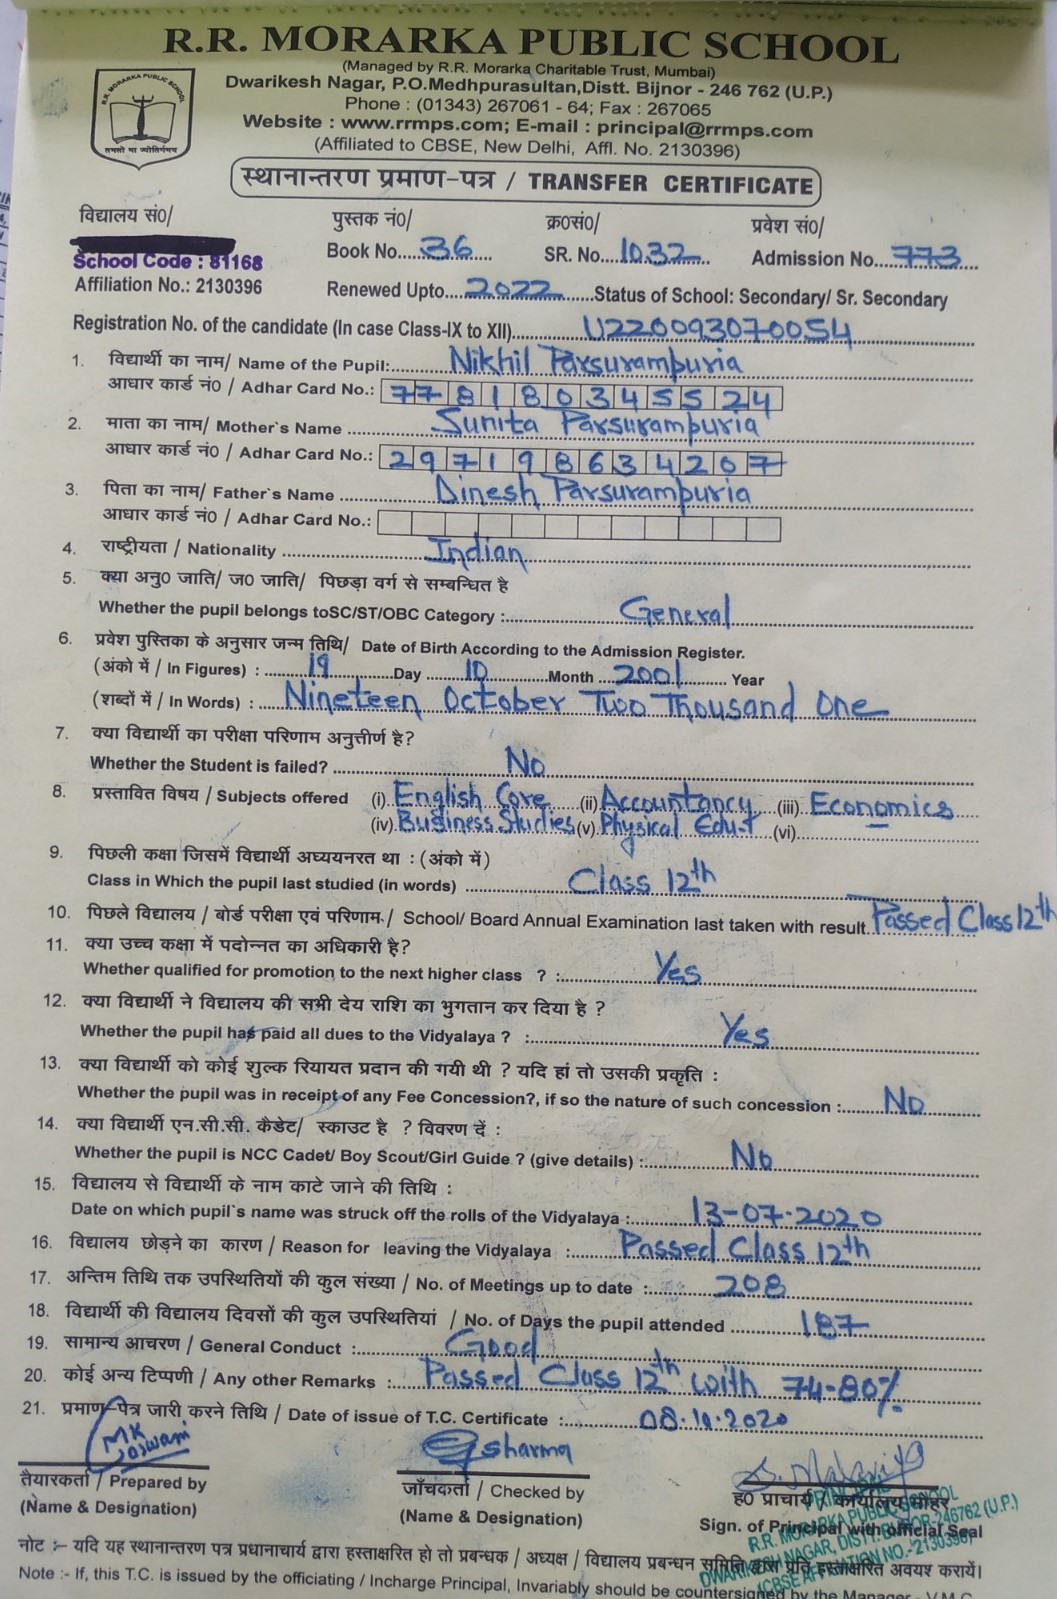 R.R. MORARKA PUBLIC SCHOOL
(Managed by R.R. Morarka Charitable Trust, Mumbai)
Dwarikesh Nagar, P.O.Medhpurasultan,Distt. Bijnor - 246 762 (U.P.)
Phone : (01343) 267061 - 64; Fax : 267065
Website : www.rrmps.com; E-mail : principal@rrmps.com
(Affiliated to CBSE, New Delhi, Affl. No. 2130396)
R.R. MORARKA PUBLIC SCHOOL
तमसो मा ज्योतिर्गमय
स्थानान्तरण प्रमाण-पत्र / TRANSFER CERTIFICATE
विद्यालय सं0/ पुस्तक नं0/ क्र0सं0/ प्रवेश सं0/
Book No. 36 SR. No. 1032 Admission No. 773
School Code : 81168
Affiliation No.: 2130396 Renewed Upto 2022 Status of School: Secondary/ Sr. Secondary
Registration No. of the candidate (In case Class-IX to XII) U220093070054
1. विद्यार्थी का नाम/ Name of the Pupil: Nikhil Parsurampuria
आधार कार्ड नं0 / Adhar Card No.: 778180345524
2. माता का नाम/ Mother`s Name Sunita Parsurampuria
आधार कार्ड नं0 / Adhar Card No.: 297198634207
3. पिता का नाम/ Father`s Name Dinesh Parsurampuria
आधार कार्ड नं0 / Adhar Card No.:
4. राष्ट्रीयता / Nationality Indian
5. क्या अनु0 जाति/ ज0 जाति/ पिछड़ा वर्ग से सम्बन्धित है
Whether the pupil belongs toSC/ST/OBC Category : General
6. प्रवेश पुस्तिका के अनुसार जन्म तिथि/ Date of Birth According to the Admission Register.
(अंको में / In Figures) : 19 Day 10 Month 2001 Year
(शब्दों में / In Words) : Nineteen October Two Thousand One
7. क्या विद्यार्थी का परीक्षा परिणाम अनुत्तीर्ण है?
Whether the Student is failed? No
8. प्रस्तावित विषय / Subjects offered (i) English Core (ii) Accountancy (iii) Economics
(iv) Business Studies (v) Physical Edu-t (vi)
9. पिछली कक्षा जिसमें विद्यार्थी अघ्ययनरत था : (अंको में)
Class in Which the pupil last studied (in words) Class 12th
10. पिछले विद्यालय / बोर्ड परीक्षा एवं परिणाम / School/ Board Annual Examination last taken with result. Passed Class 12th
11. क्या उच्च कक्षा में पदोन्नत का अधिकारी है?
Whether qualified for promotion to the next higher class ? : Yes
12. क्या विद्यार्थी ने विद्यालय की सभी देय राशि का भुगतान कर दिया है ?
Whether the pupil has paid all dues to the Vidyalaya ? : Yes
13. क्या विद्यार्थी को कोई शुल्क रियायत प्रदान की गयी थी ? यदि हां तो उसकी प्रकृति :
Whether the pupil was in receipt of any Fee Concession?, if so the nature of such concession : No
14. क्या विद्यार्थी एन.सी.सी. कैडेट/ स्काउट है ? विवरण दें :
Whether the pupil is NCC Cadet/ Boy Scout/Girl Guide ? (give details) : No
15. विद्यालय से विद्यार्थी के नाम काटे जाने की तिथि :
Date on which pupil`s name was struck off the rolls of the Vidyalaya : 13-07-2020
16. विद्यालय छोड़ने का कारण / Reason for leaving the Vidyalaya : Passed Class 12th
17. अन्तिम तिथि तक उपस्थितियों की कुल संख्या / No. of Meetings up to date : 208
18. विद्यार्थी की विद्यालय दिवसों की कुल उपस्थितियां / No. of Days the pupil attended 187
19. सामान्य आचरण / General Conduct : Good
20. कोई अन्य टिप्पणी / Any other Remarks : Passed Class 12th with 74-80%
21. प्रमाण-पत्र जारी करने तिथि / Date of issue of T.C. Certificate : 08.10.2020
MK Goswami Sharma
तैयारकर्ता / Prepared by जाँचकर्ता / Checked by ह0 प्राचार्य कार्यालय मोहर
(Name & Designation) (Name & Designation) Sign. of Principal with official Seal
PRINCIPAL
R.R. MORARKA PUBLIC SCHOOL
DWARIKESH NAGAR, DISTT. BIJNOR-246762 (U.P.)
(CBSE AFFILIATION NO.-2130396)
नोट :- यदि यह स्थानान्तरण पत्र प्रधानाचार्य द्वारा हस्ताक्षरित हो तो प्रबन्धक / अध्यक्ष / विद्यालय प्रबन्धन समिति द्वारा प्रति हस्ताक्षरित अवयश करायें।
Note :- If, this T.C. is issued by the officiating / Incharge Principal, Invariably should be countersigned by the Manager - V.M.C.